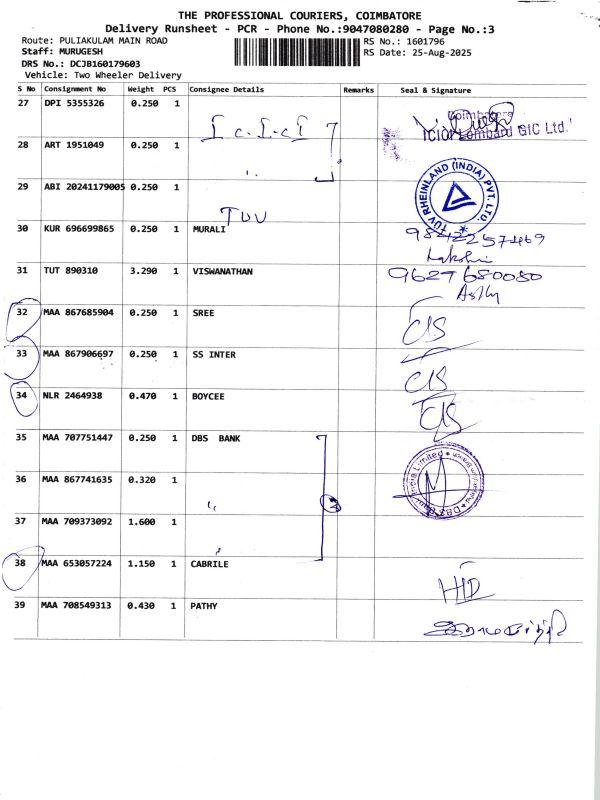 THE PROFESSIONAL COURIERS, COIMBATORE
Delivery Runsheet - PCR - Phone No.:9047080280 - Page No.:3
Route: PULIAKULAM MAIN ROAD RS No.: 1601796
Staff: MURUGESH RS Date: 25-Aug-2025
DRS No.: DCJB160179603
Vehicle: Two Wheeler Delivery
S No Consignment No Weight PCS Consignee Details Remarks Seal & Signature
27 DPI 5355326 0.250 1 I c. I. c I Coimbatore
ICICI Lombard GIC Ltd.
28 ART 1951049 0.250 1 "
29 ABI 20241179005 0.250 1 TUV TUV RHEINLAND (INDIA) PVT. LTD.
30 KUR 696699865 0.250 1 MURALI 9842257469
Lakshmi
31 TUT 890310 3.290 1 VISWANATHAN 9627680080
32 MAA 867685904 0.250 1 SREE CIS
33 MAA 867906697 0.250 1 SS INTER CIS
34 NLR 2464938 0.470 1 BOYCEE CIS
35 MAA 707751447 0.250 1 DBS BANK DBS Bank India Limited
36 MAA 867741635 0.320 1 "
37 MAA 709373092 1.600 1 "
38 MAA 653057224 1.150 1 CABRILE HD
39 MAA 708549313 0.430 1 PATHY